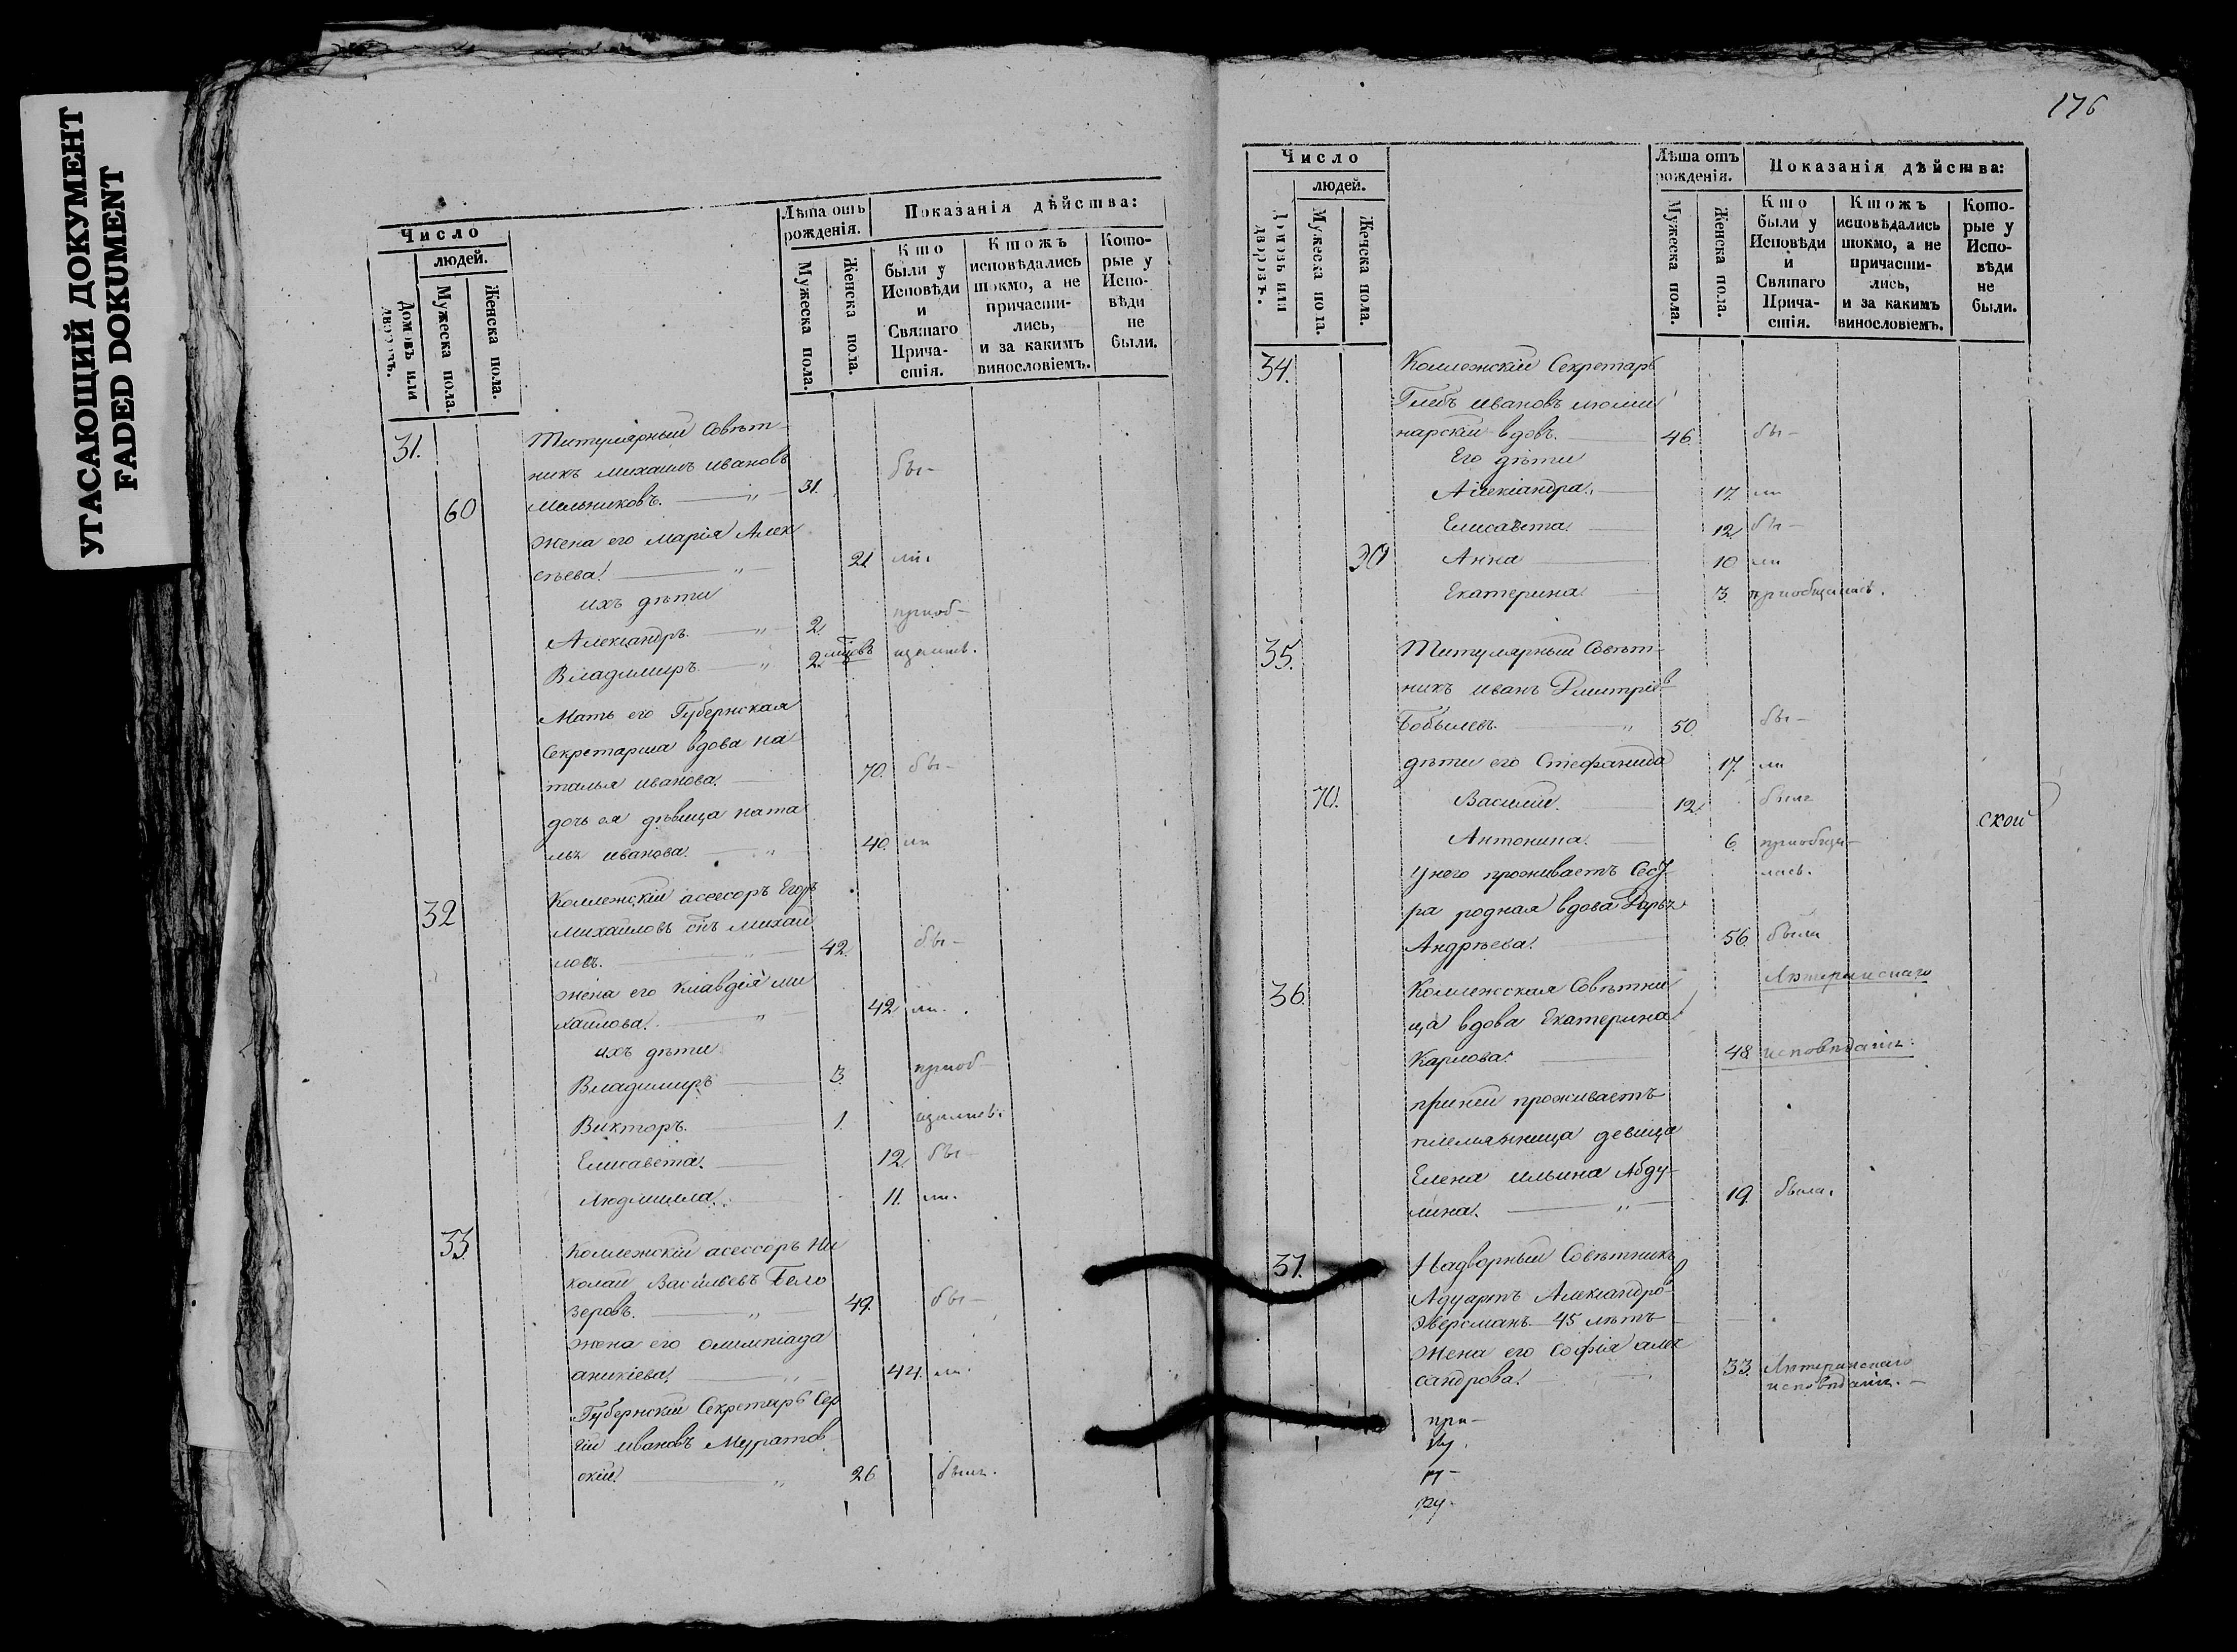 УГАСАЮЩИЙ ДОКУМЕНТ
FADED DOKUMENT
Число
людей.
Домовъ или дворовъ.
Мужеска пола.
Женска пола.
Лѣта отъ рожденія.
Мужеска пола.
Женска пола.
Показанія дѣйства:
Кто были у Исповѣди и Святаго Прича-стія.
Ктожъ исповѣдались токмо, а не причасти-лись, и за какимъ винословіемъ.
Кото-рые у Испо-вѣди не были.
31. Титулярный Совѣт-
никъ Михаилъ Ивановъ бы-
60 Мельниковъ. 31.
Жена его Марія Алек
сѣева. 21 ли.
ихъ дѣти
Александръ. 2. приоб-
Владимиръ 2. щались.
Мать его Губернская
Секретарша вдова На
талья Иванова. 70. бы-
дочь ея дѣвица Ната
лья Иванова. 40. ли
32 Коллежскій асессоръ Егоръ
Михайловъ Михай
ловъ. 42. бы-
жена его Клавдія Ми
хайлова. 42 ли.
ихъ дѣти
Владимиръ 3. приоб
Викторъ. 1. щались.
Елисавета. 12. бы-
Людмилла. 11. ли.
33 Коллежскій асессоръ Ни
колай Васильевъ Бело
зеровъ. 49. бы-
жена его Олимпіада
Аникіева. 44. ли.
Губернскій Секретарь Сер
гій Ивановъ Муратов
скій. 26 былъ.
176
Число
людей.
Домовъ или дворовъ.
Мужеска пола.
Женска пола.
Лѣта отъ рожденія.
Мужеска пола.
Женска пола.
Показанія дѣйства:
Кто были у Исповѣди и Святаго Прича-стія.
Ктожъ исповѣдались токмо, а не причасти-лись, и за какимъ винословіемъ.
Кото-рые у Испо-вѣди не были.
34. Коллежскій Секретарь
Глебъ Ивановъ
нарскій вдовъ. 46. бы-
Его дѣти
Александра. 17. ли
Елисавета. 12. бы-
Анна 10 ли
Екатерина 3. приобщались.
35. Титулярный Совѣт-
никъ Иванъ Дмитріев
Бобылевъ. 50. бы-
дѣти его Стефанида 17. ли
70. Василий. 12. былъ
ской
Антонина. 6. приобща-
У него проживаетъ Сест лась.
ра родная вдова Дарья
Андрѣева. 56. была
36. Коллежская Совѣтни Лютеранскаго
ца вдова Екатерина
Карлова. 48. исповѣданія.
при ней проживаетъ
племянница девица
Елена Ильина Абду-
лина. 19. была.
37. Надворный Совѣтникъ
Адуартъ Александров
Эверсманъ 45 лѣтъ
Жена его Софія Алек
сандрова. 33. Лютеранскаго
исповѣданія.
при-
ру.